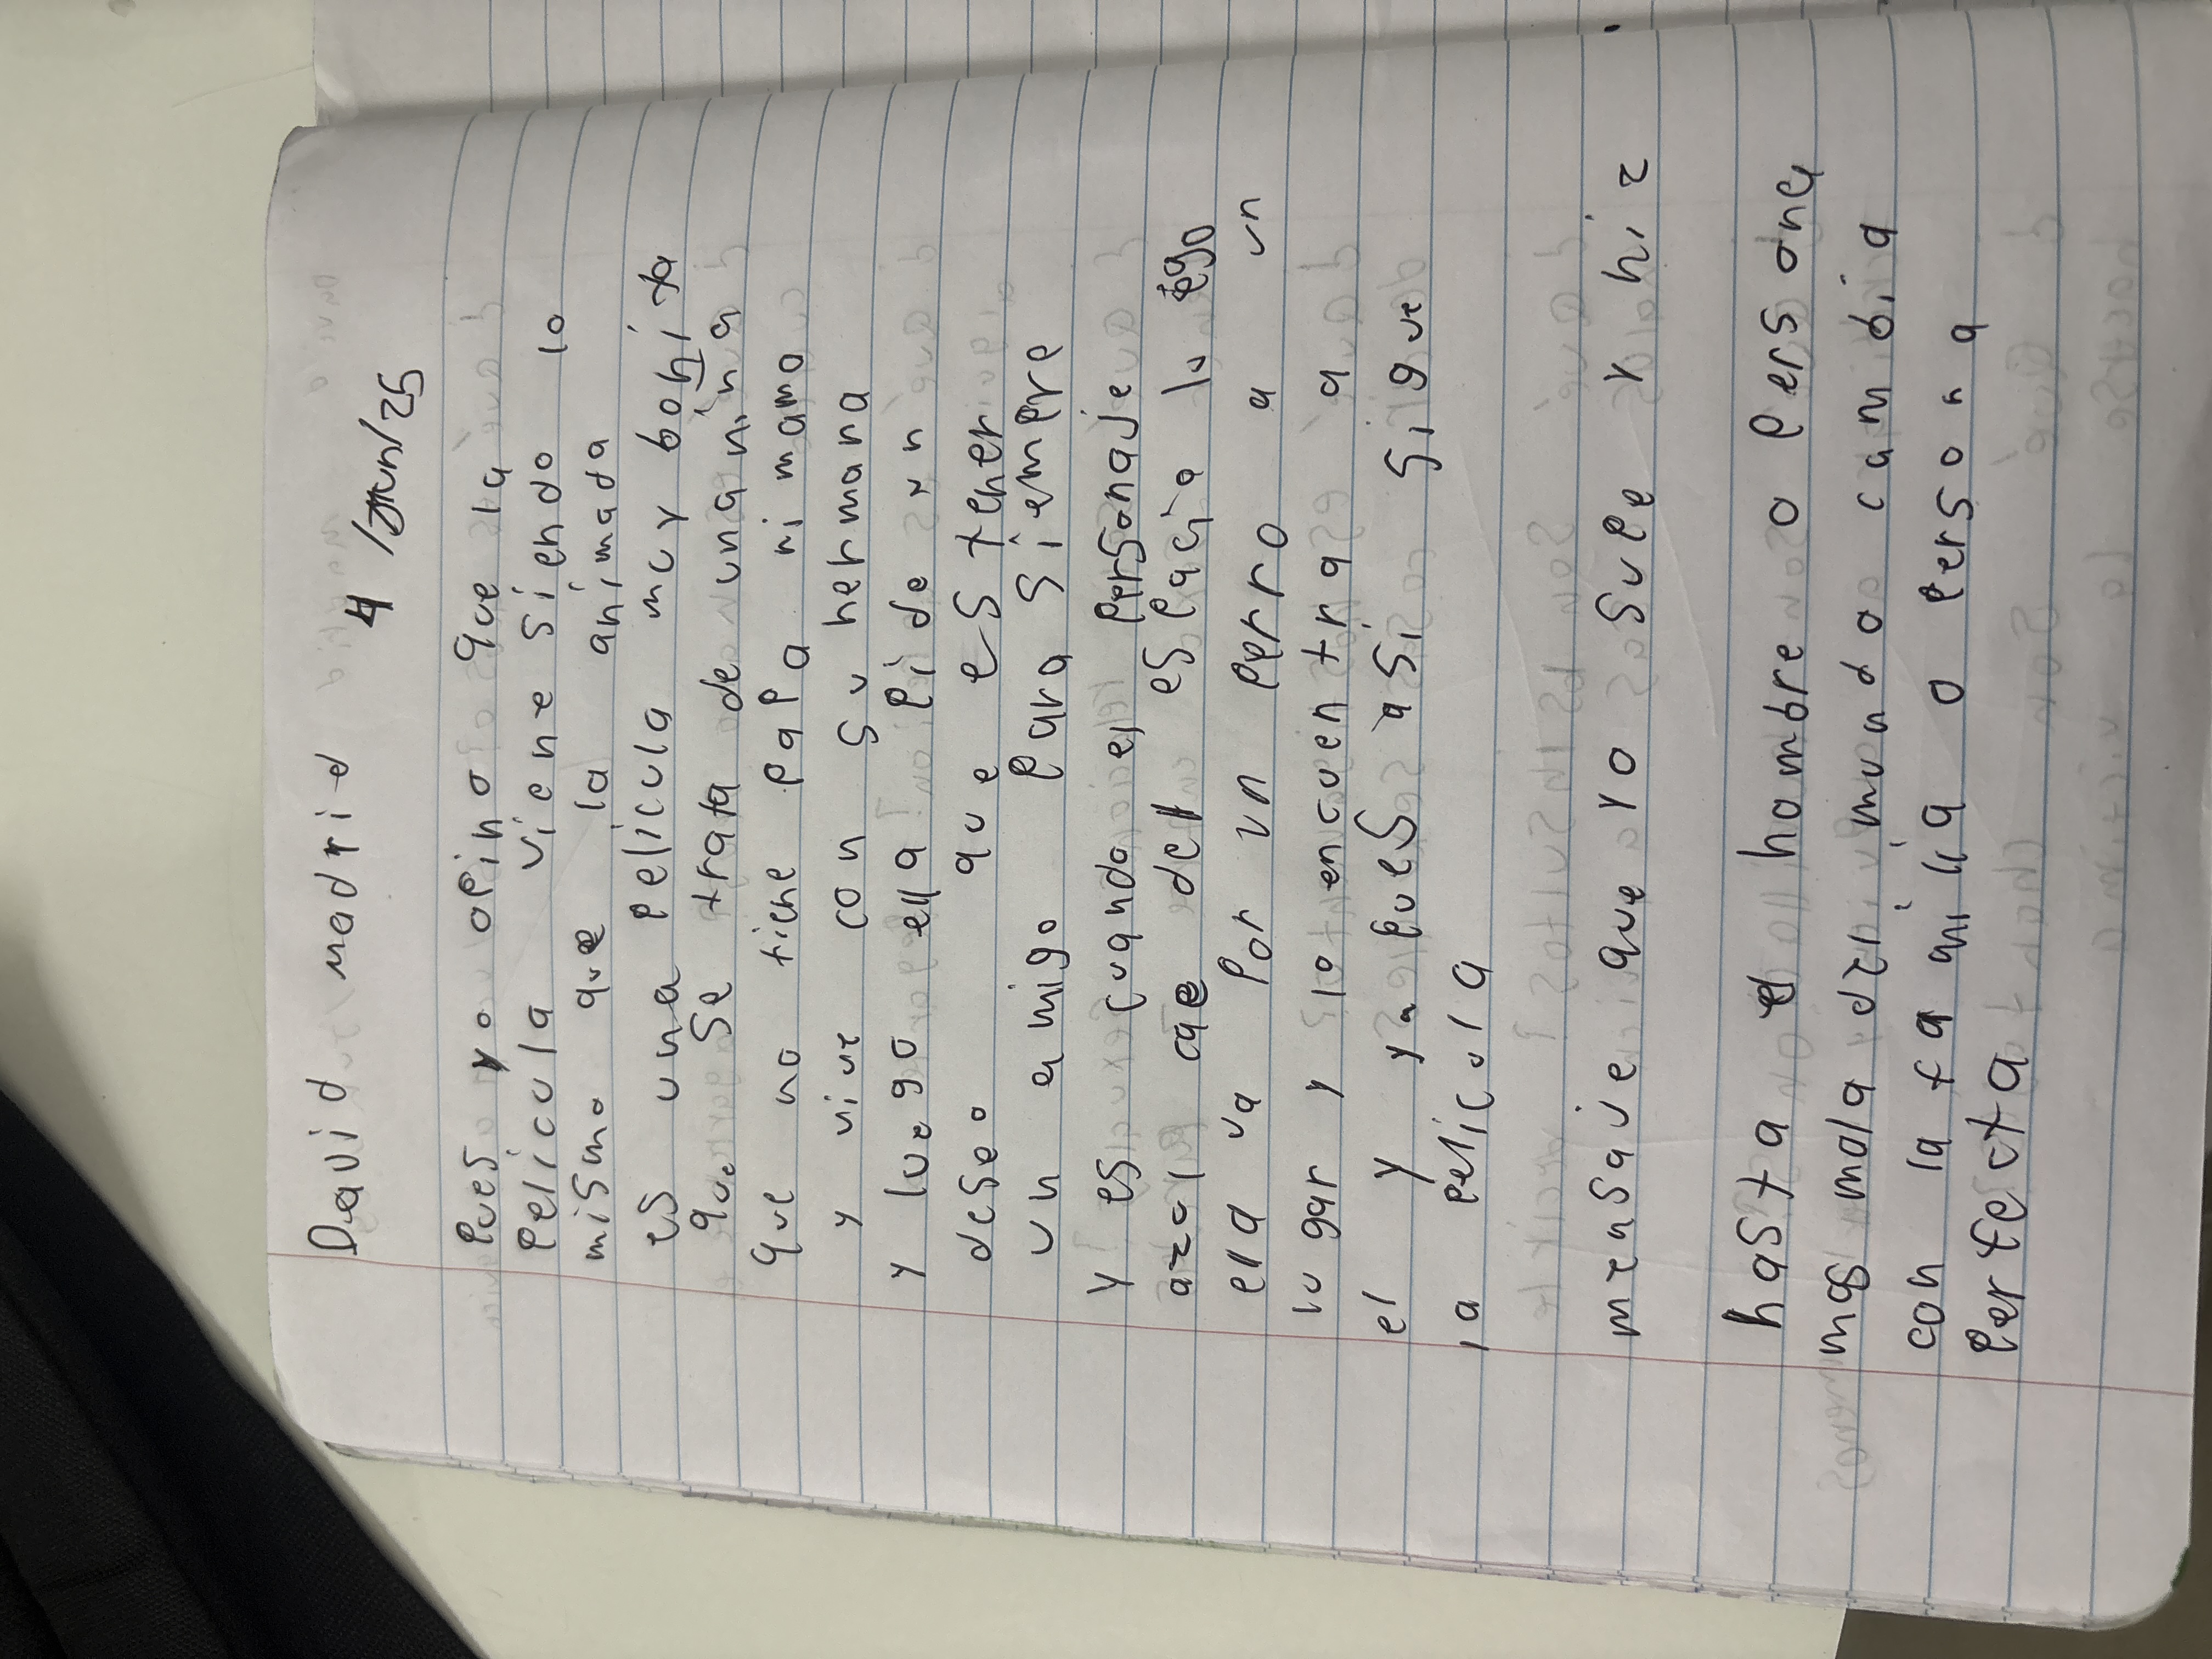 David madrid
4 /Jun/25
Pues yo opino que la
Pelicula viene siendo lo
mismo que la animada
es una pelicula muy bonita
que se trata de una niña
que no tiene papa ni mama
y vive con su hermana
y luego ella pide un
deseo que es tener
un amigo para siempre
y es cuando el personaje
azul cae del espacio luego
ella va por un perro a un
lugar y lo encuentra a
el y ya pues asi sigue
la pelicula
mensaje que yo supe y hic
hasta el hombre o persona
mas mala del mundo cambia
con la familia o persona
perfecta